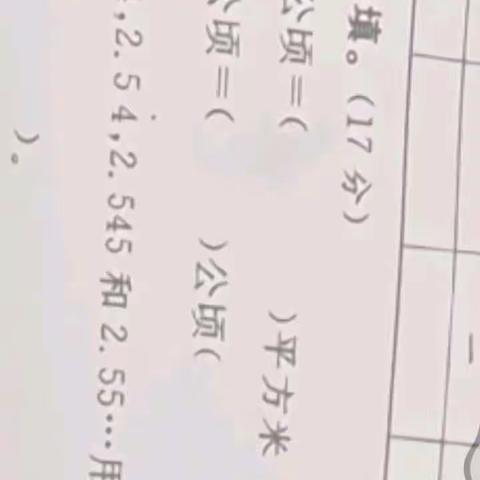 一
填。(17 分)
公顷=(    )平方米
公顷=(    )公顷(
,2.54̇,2.545 和 2.55…用
)。